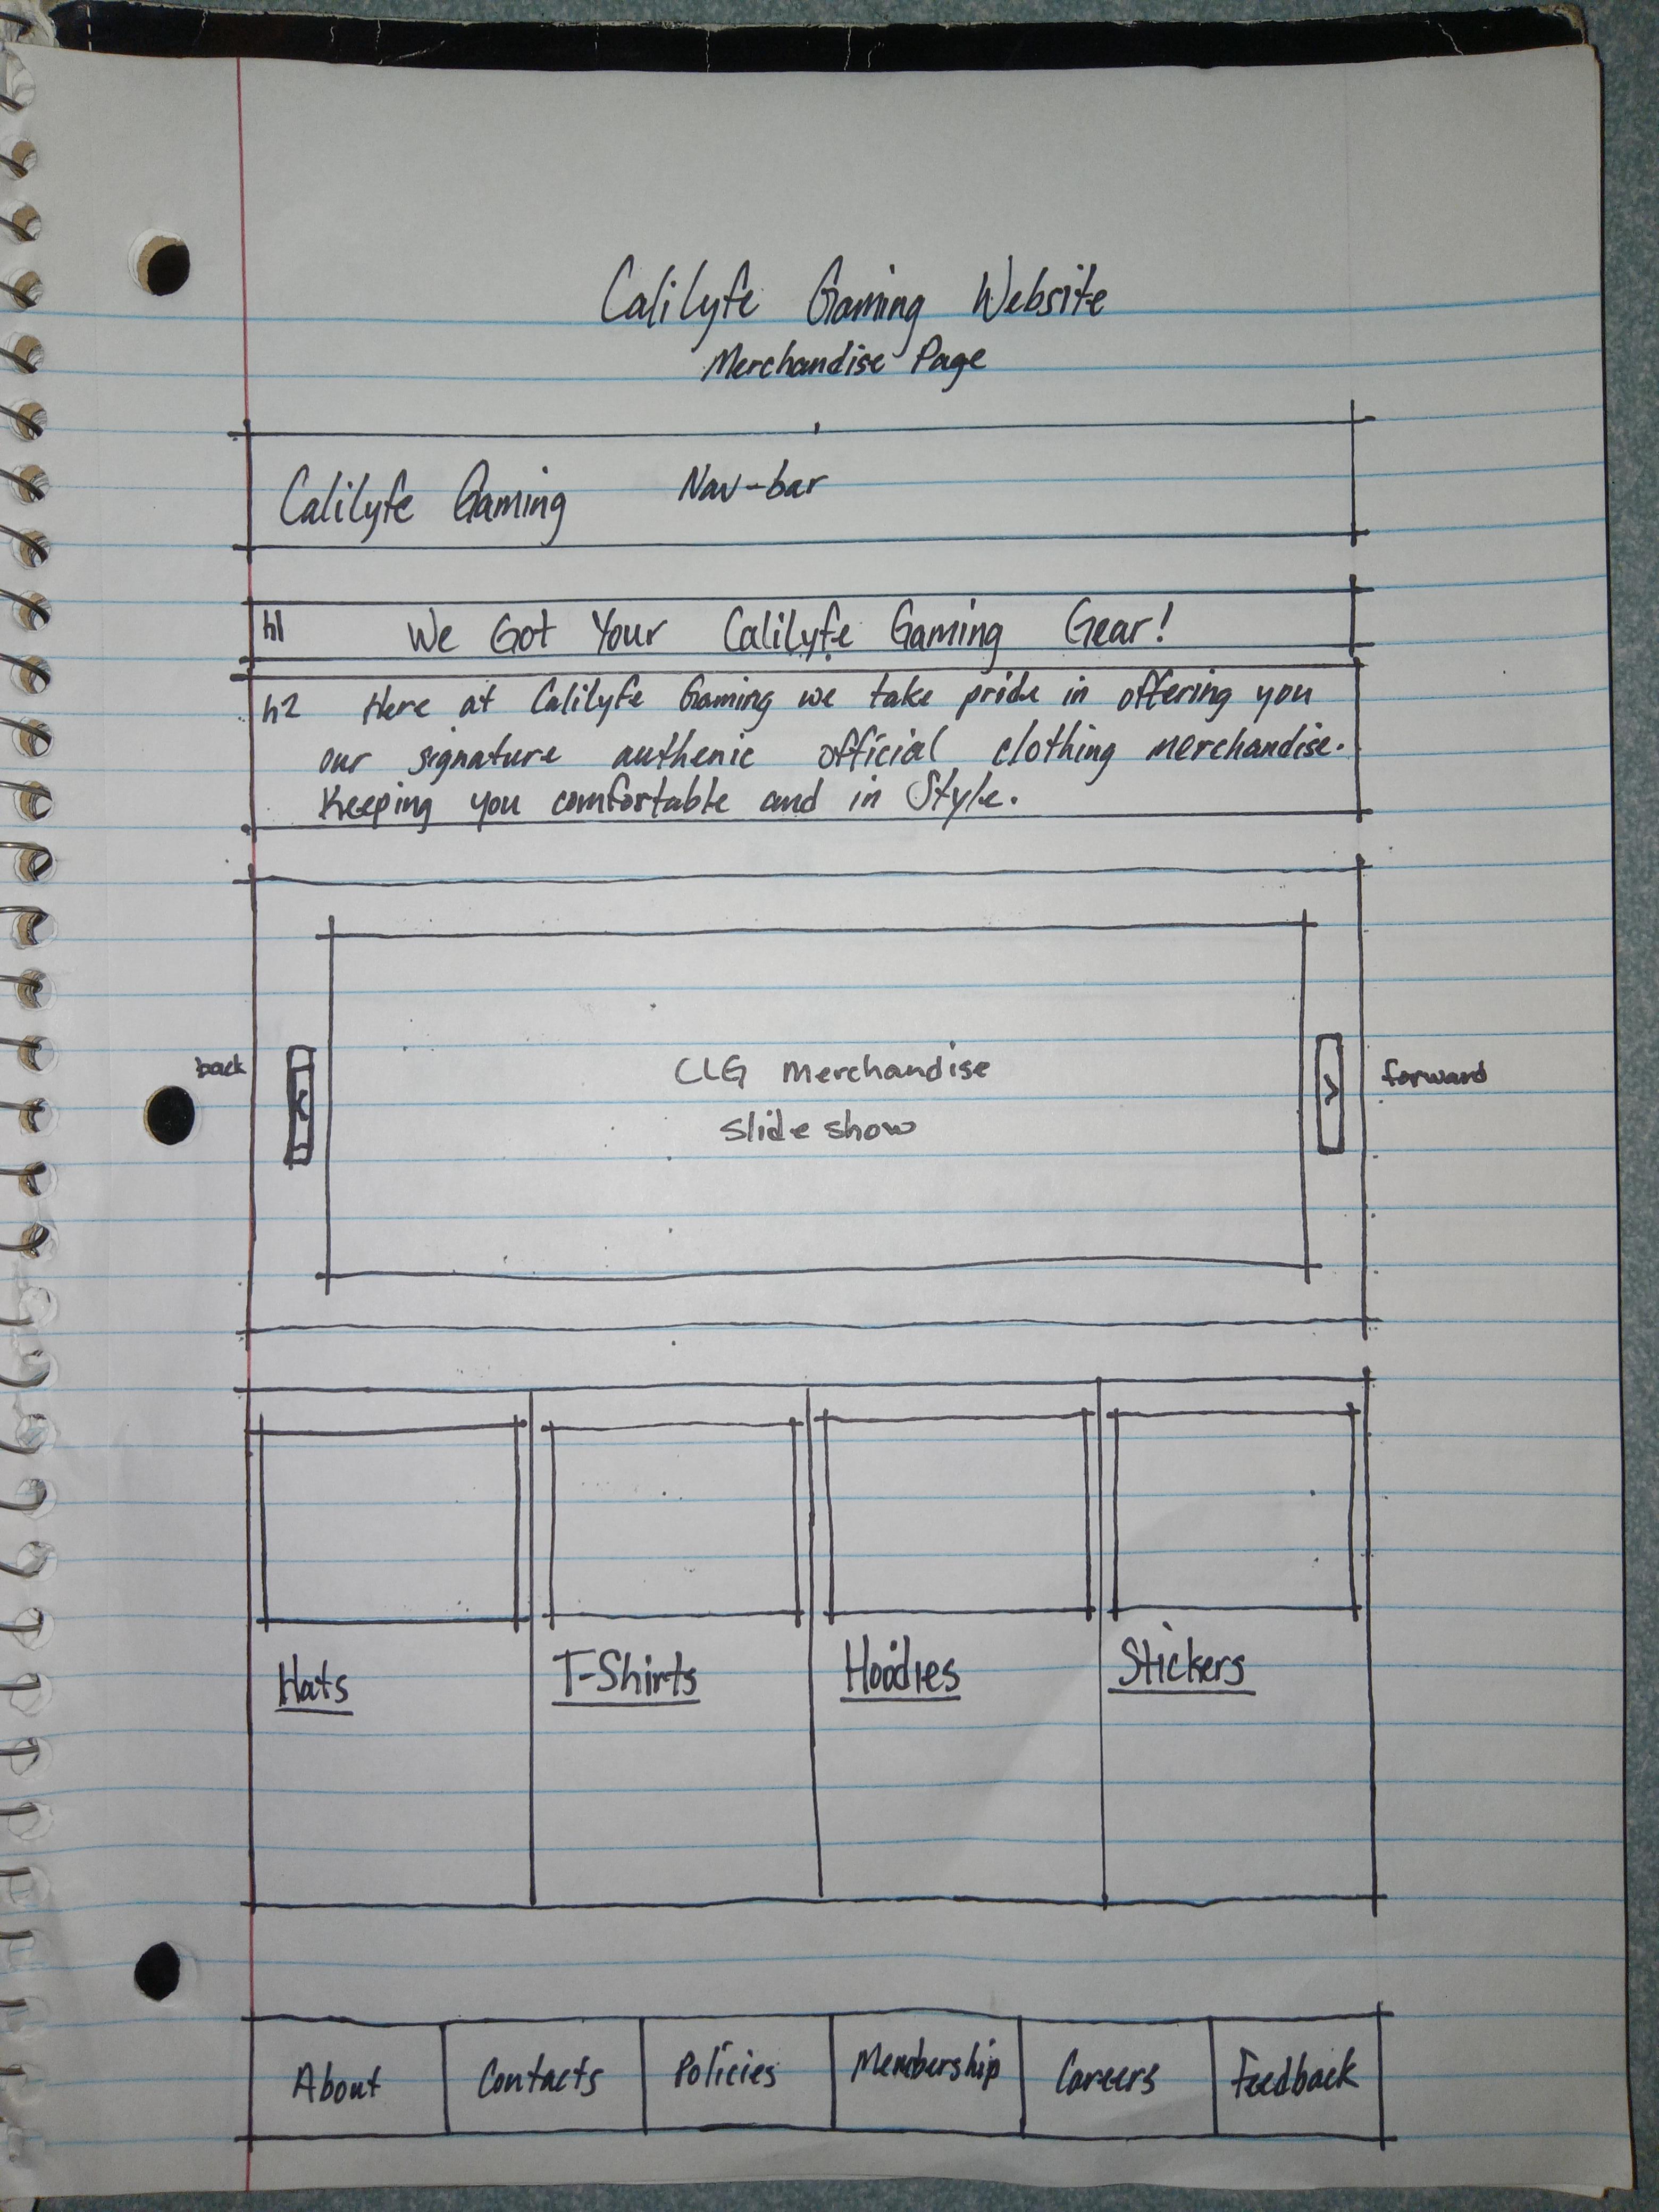 Calilyfe Gaming Website
Merchandise Page
Calilyfe Gaming Nav-bar
h1 We Got Your Calilyfe Gaming Gear!
h2 Here at Calilyfe Gaming we take pride in offering you
our signature authenic official clothing merchandise.
Keeping you comfortable and in Style.
back < > forward
CLG merchandise
Slide show
Hats T-Shirts Hoodies Stickers
About Contacts Policies Membership Careers Feedback